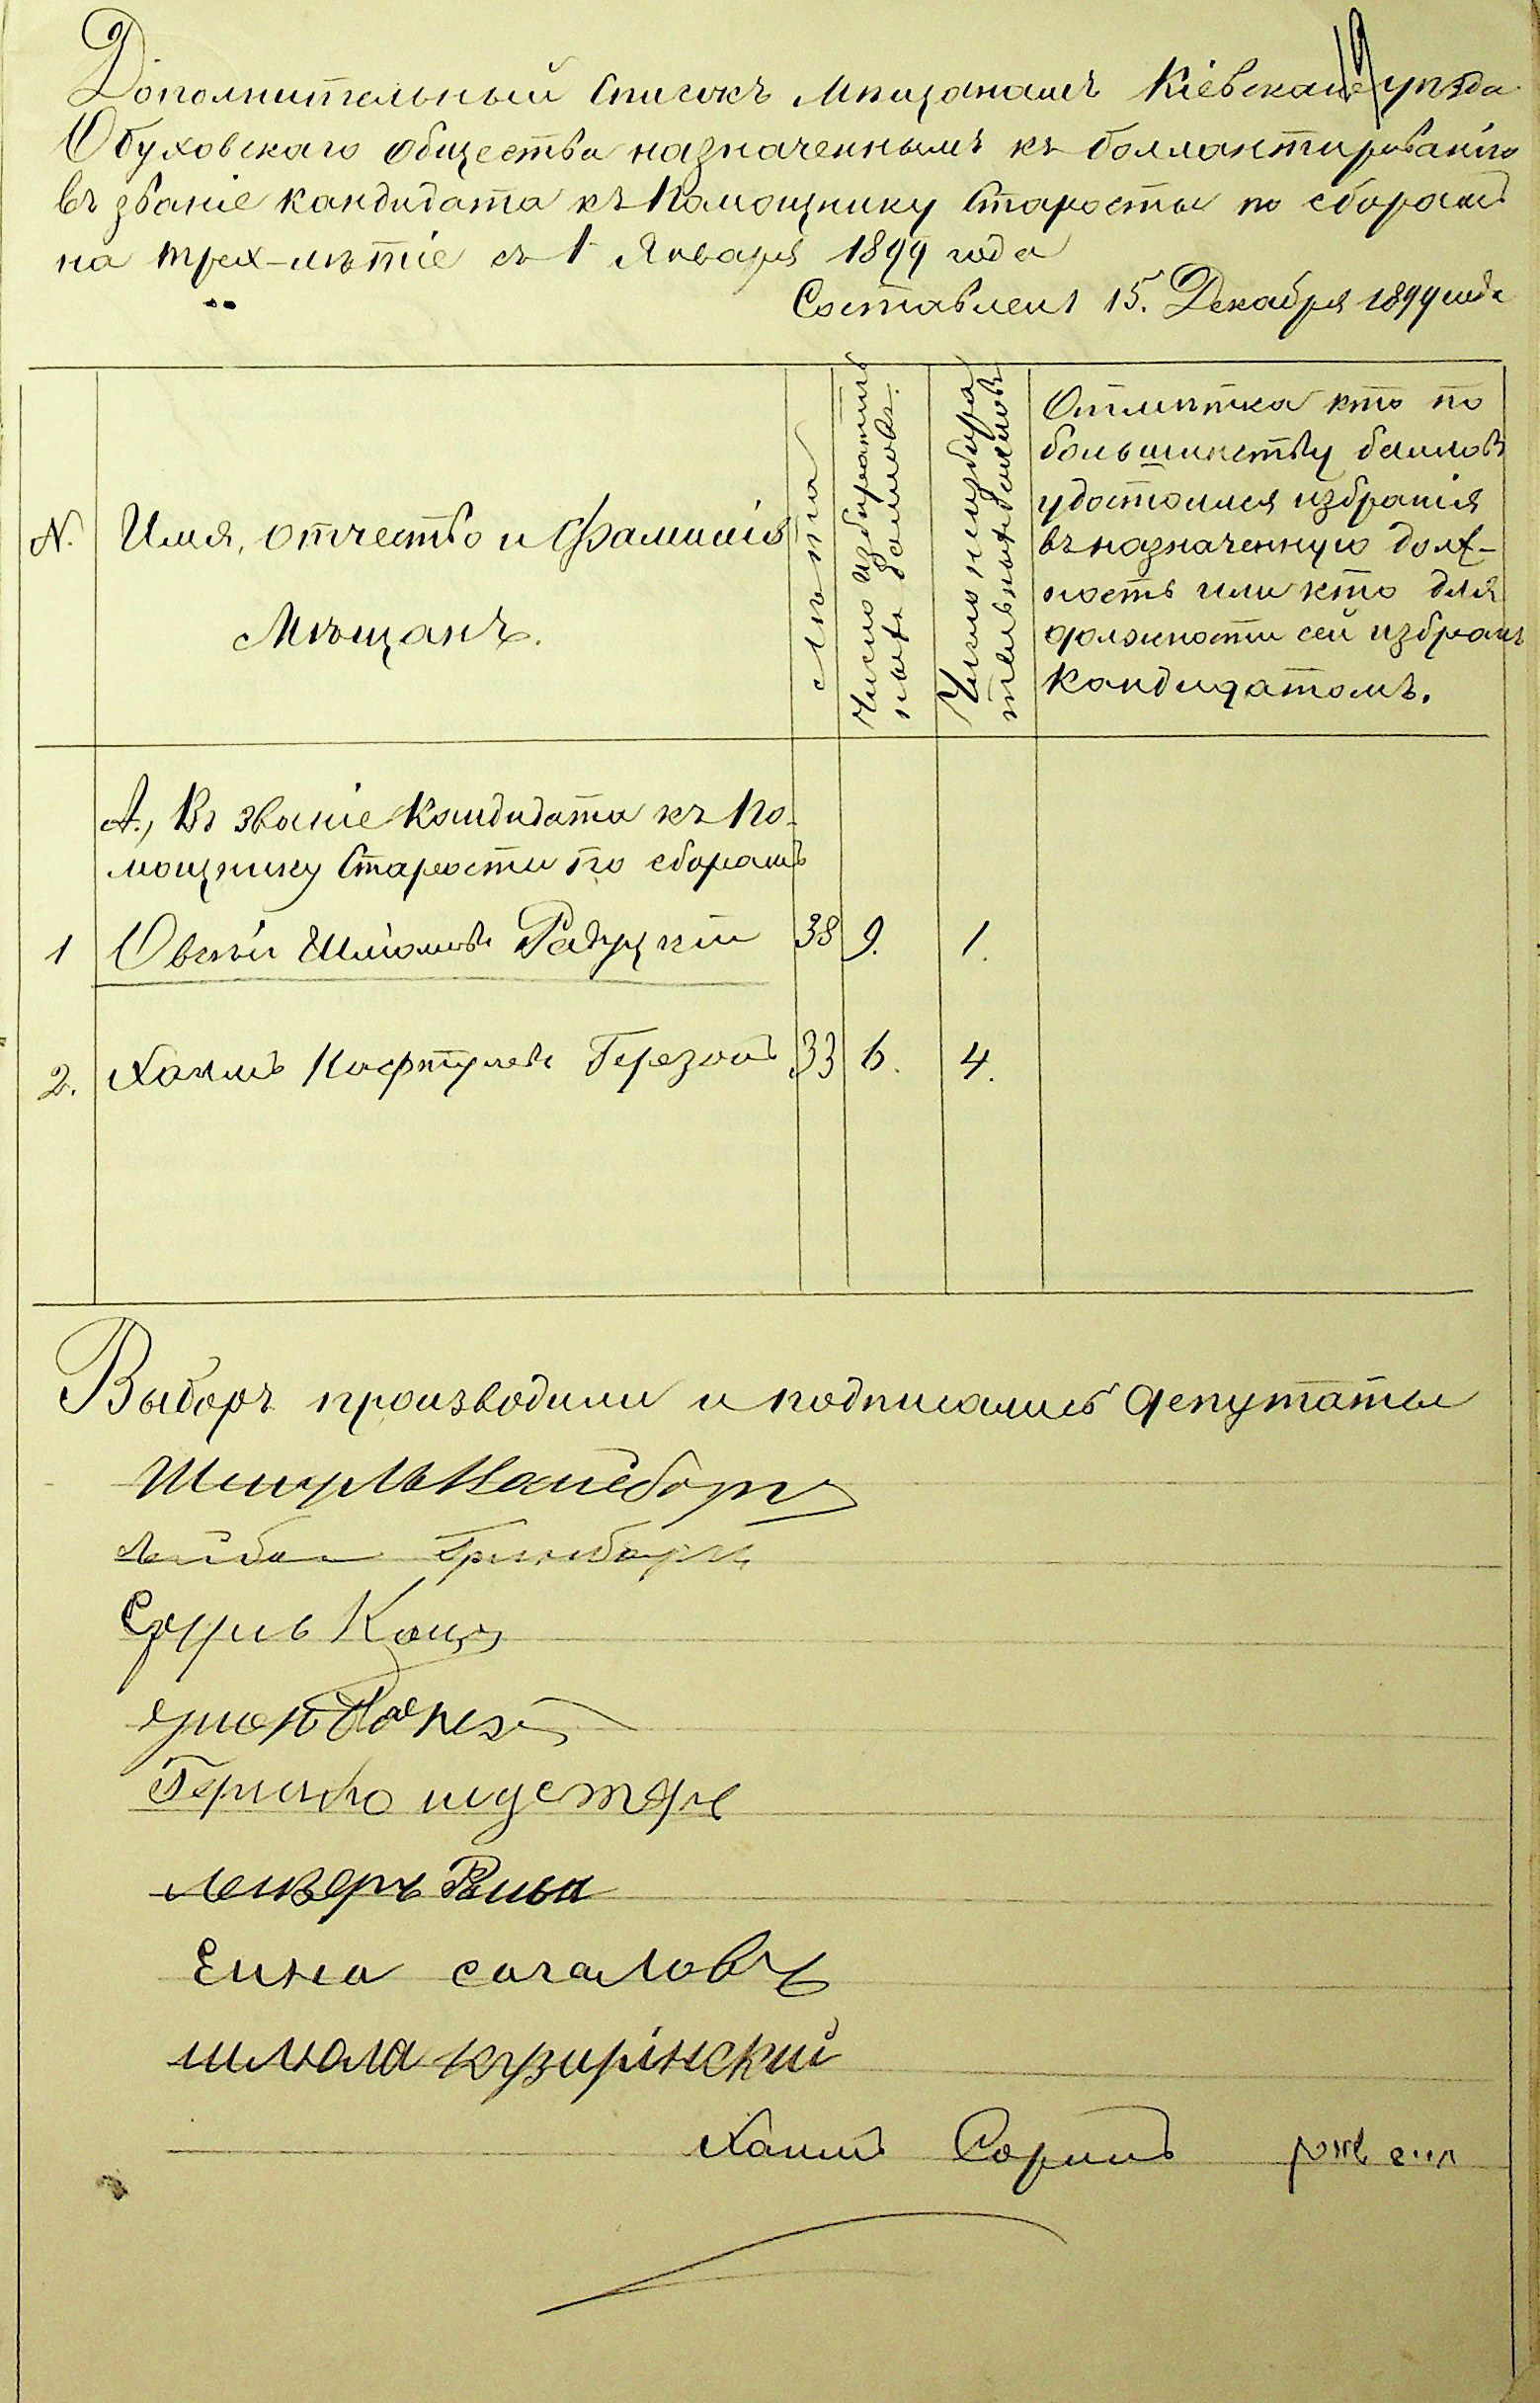 19
Дополнительный Списокъ Мѣщанамъ Кіевскаго уѣзда
Обуховскаго общества назначеннымъ къ баллантированію
въ званіе кандидата къ Помощнику Старосты по сборамъ
на трех-лѣтіе съ 1 Января 1899 года
Составленъ 15. Декабря 1899 года
N.
Имя, отчество и Фамилія
Мѣщанъ.
Лѣта
Число избиратель
ныхъ балловъ.
Число неизбира
тельныхъ балловъ
Отмѣтка кто по
большинству балловъ
удостоился избранія
въ назначенную долж-
ность или кто для
должности сей избранъ
Кандидатомъ.
А., Въ званіе Кандидата къ По-
мощнику Старосты по сборамъ
1 Овсѣй Шліомовъ Радуцкій 38 9. 1.
2. Хаимъ Нафтулевъ 33 6. 4.
Выборъ производили и подписались депутаты
Лейба Гринбергъ
Сруль Кацъ
Гершко шустеръ
лейзеръ
Енна согаловъ
шмола кузиринский
Хаимъ Соринъ